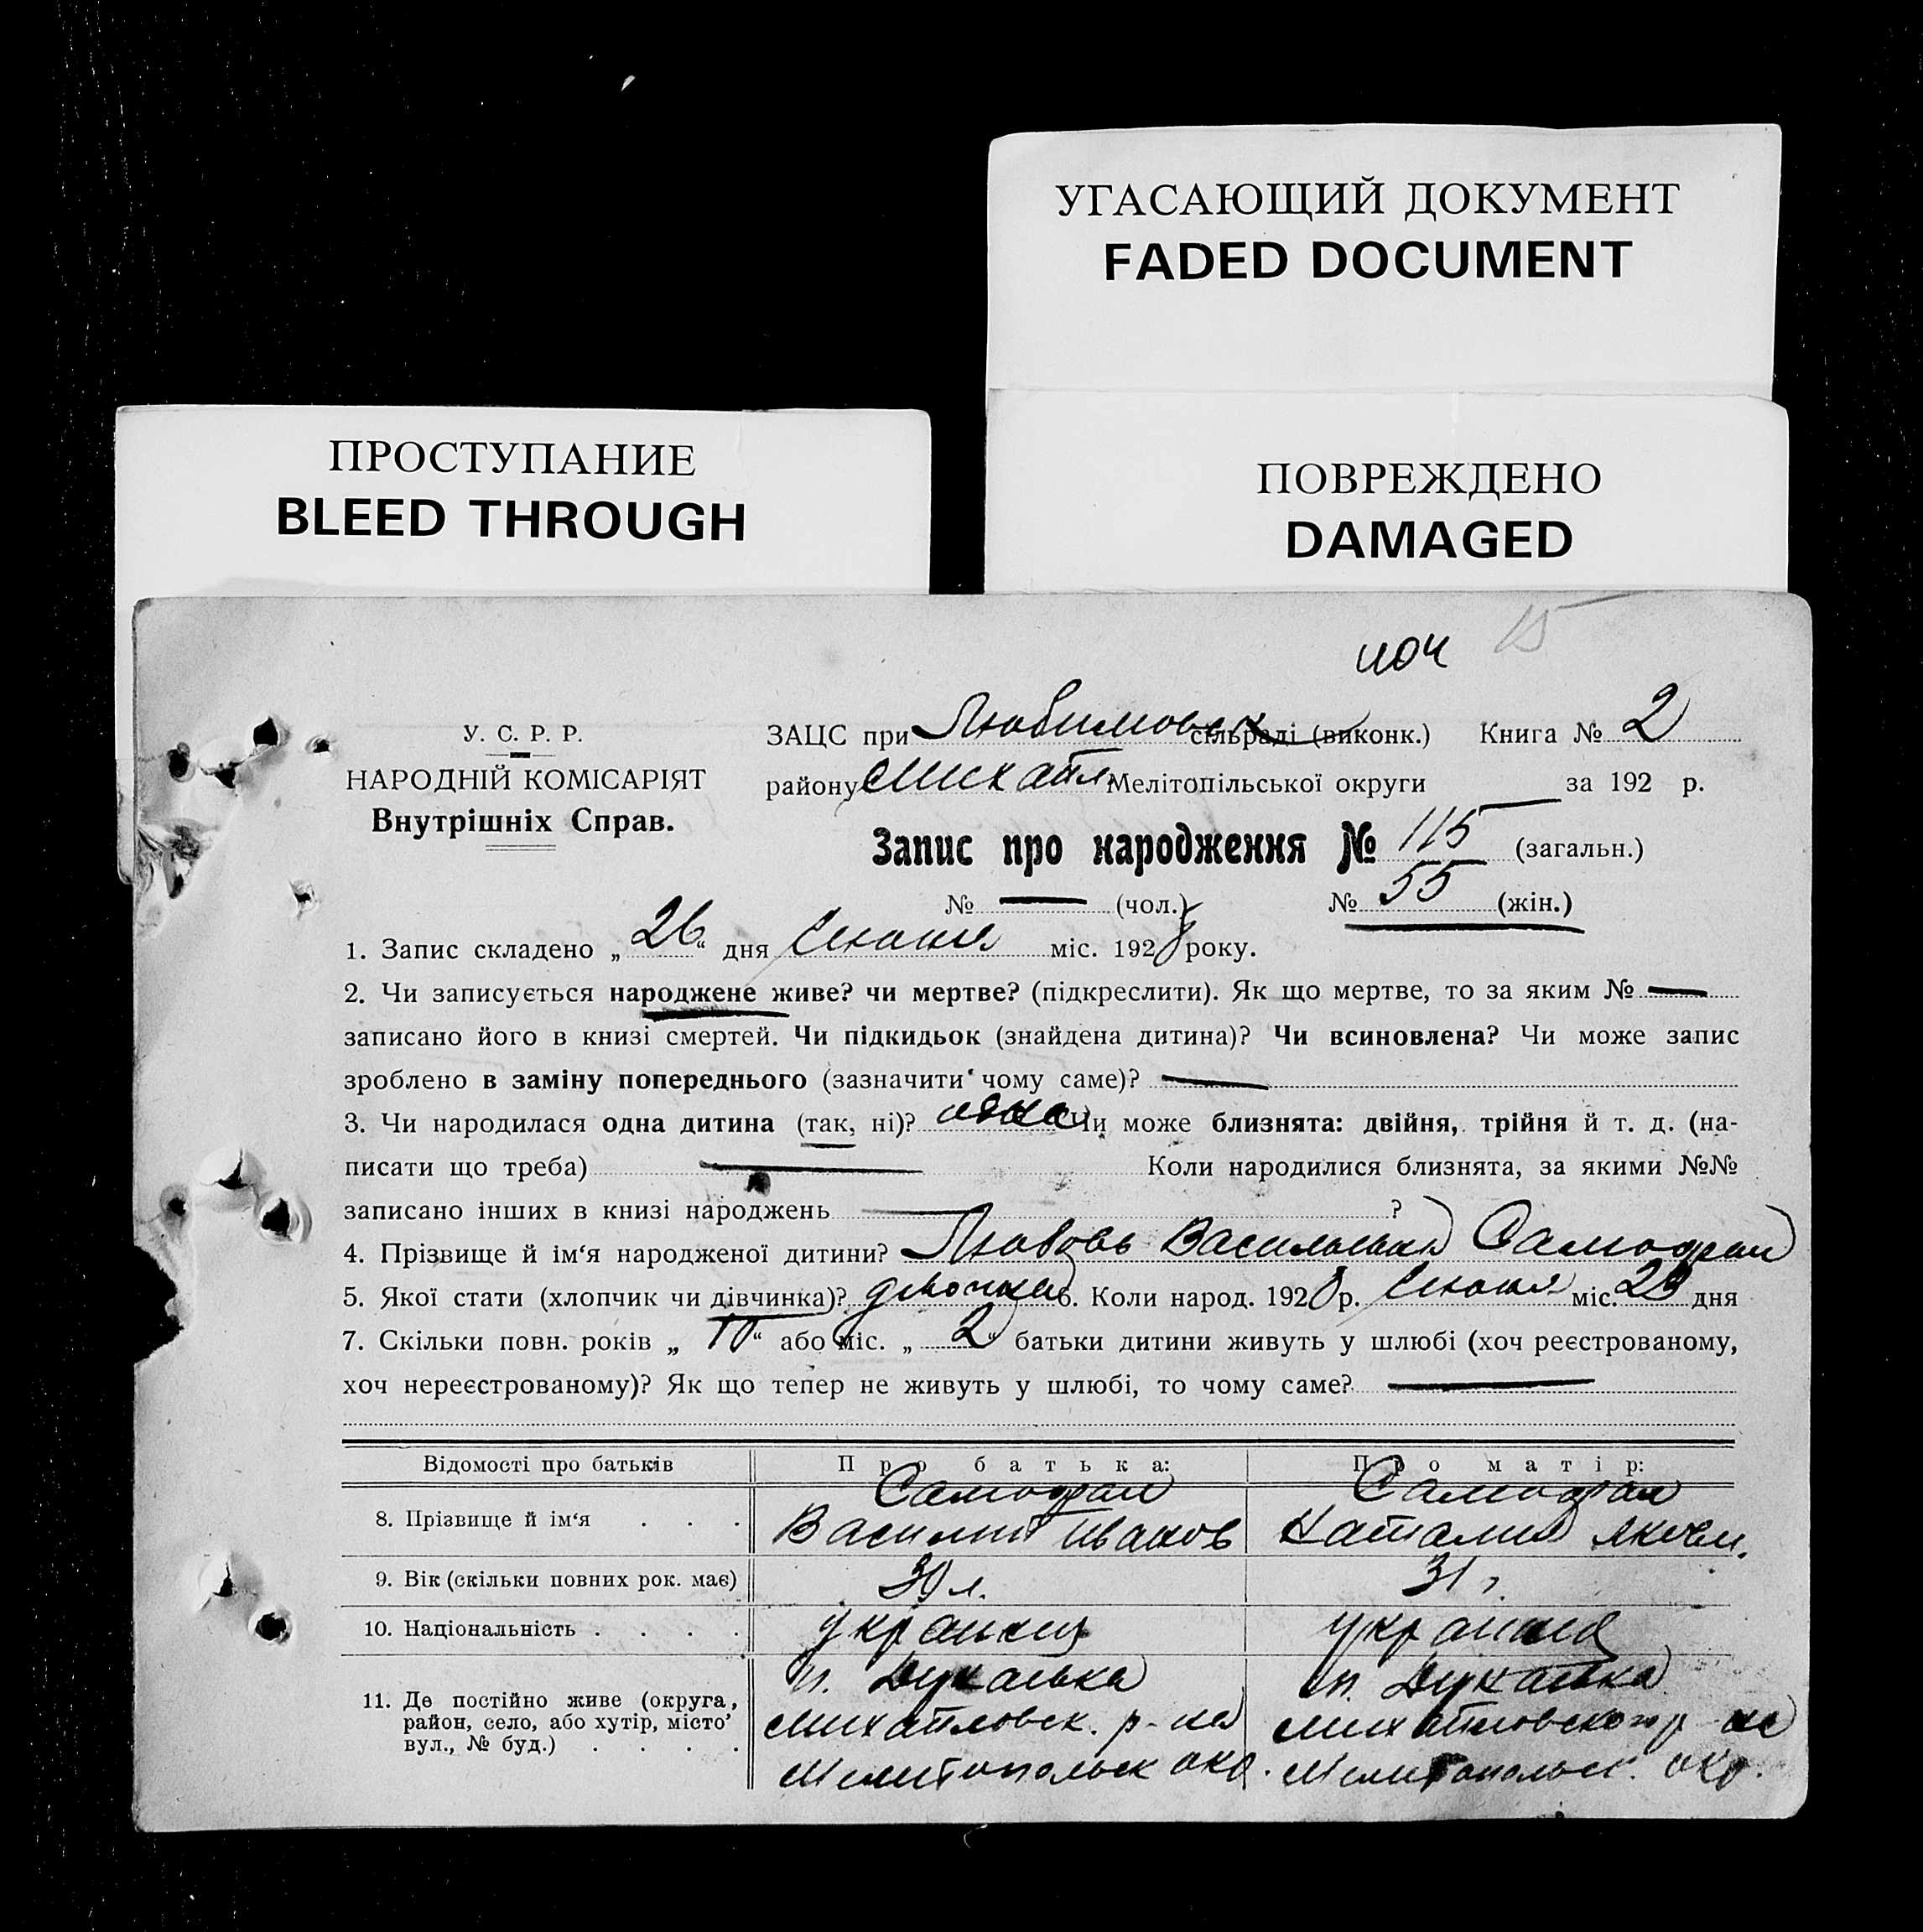 УГАСАЮЩИЙ ДОКУМЕНТ
FADED DOCUMENT
ПРОСТУПАНИЕ
BLEED THROUGH
ПОВРЕЖДЕНО
DAMAGED
15
У. С. Р. Р.
НАРОДНІЙ КОМІСАРІЯТ
Внутрішніх Справ.
ЗАЦС при Любимовск сільраді (виконк.) Книга № 2
району Михайл Мелітопільської округи за 192 р.
Запис про народження № 115 (загальн.)
№ — (чол.) № 55 (жін.)
1. Запис складено „26“ дня Июня міс. 1928 року.
2. Чи записується народжене живе? чи мертве? (підкреслити). Як що мертве, то за яким № —
записано його в книзі смертей. Чи підкидьок (знайдена дитина)? Чи всиновлена? Чи може запис
зроблено в заміну попереднього (зазначити чому саме)? —
3. Чи народилася одна дитина (так, ні)? одна Чи може близнята: двійня, трійня й т. д. (на-
писати що треба) — Коли народилися близнята, за якими №№
записано інших в книзі народжень — ?
4. Прізвище й ім‘я народженої дитини? Любовь Васильевна Самодрал
5. Якої стати (хлопчик чи дівчинка)? девочка 6. Коли народ. 1928 р. Июня міс. дня
7. Скільки повн. років „10“ або міс. „2“ батьки дитини живуть у шлюбі (хоч реєстрованому,
хоч нереєстрованому)? Як що тепер не живуть у шлюбі, то чому саме? —
Відомості про батьків Про батька: Про матір:
Самодрал Самодрал
8. Прізвище й ім‘я . . . Василий Иванов Наталия Яким.
9. Вік (скільки повних рок. має) л. 31 г.
10. Національність . . . . украинец украинка
11. Де постійно живе (округа, район, село, або хутір, місто вул., № буд.) . . . .
п. п.
Михайловск. р-на Михайловского р-на
Мелитопольск окр. Мелитопольск. окр.